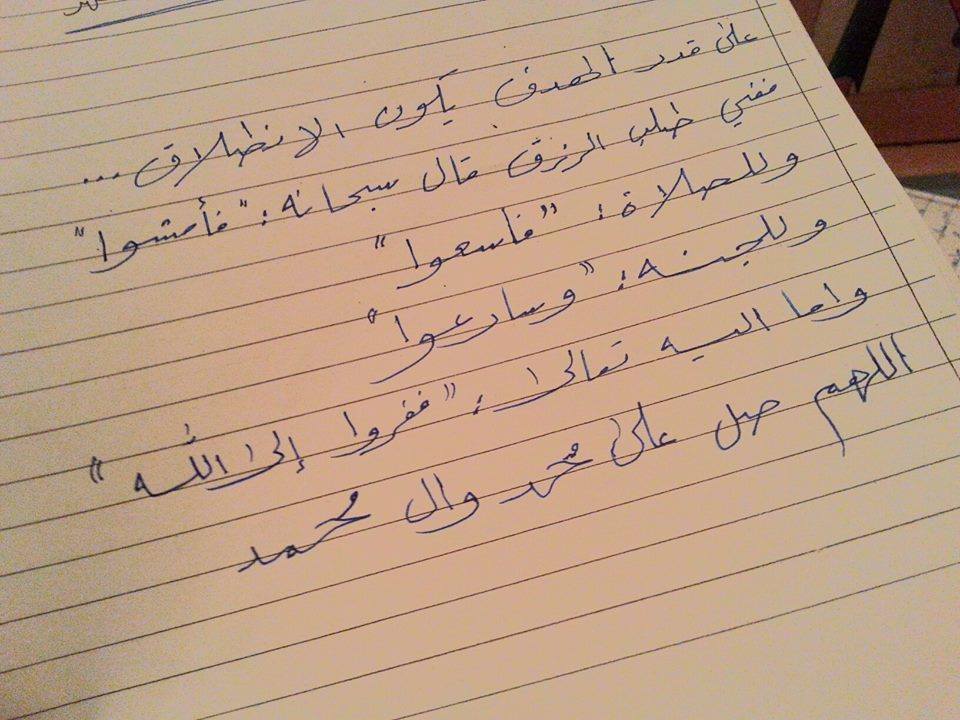 على قدر الهدف يكون الانطلاق...
ففي طلب الرزق قال سبحانه: "فأمشوا"
وللصلاة: "فاسعوا"
وللجنه: "وسارعوا"
واما اليه تعالى: "ففروا إلى الله"
اللهم صل على محمد وال محمد